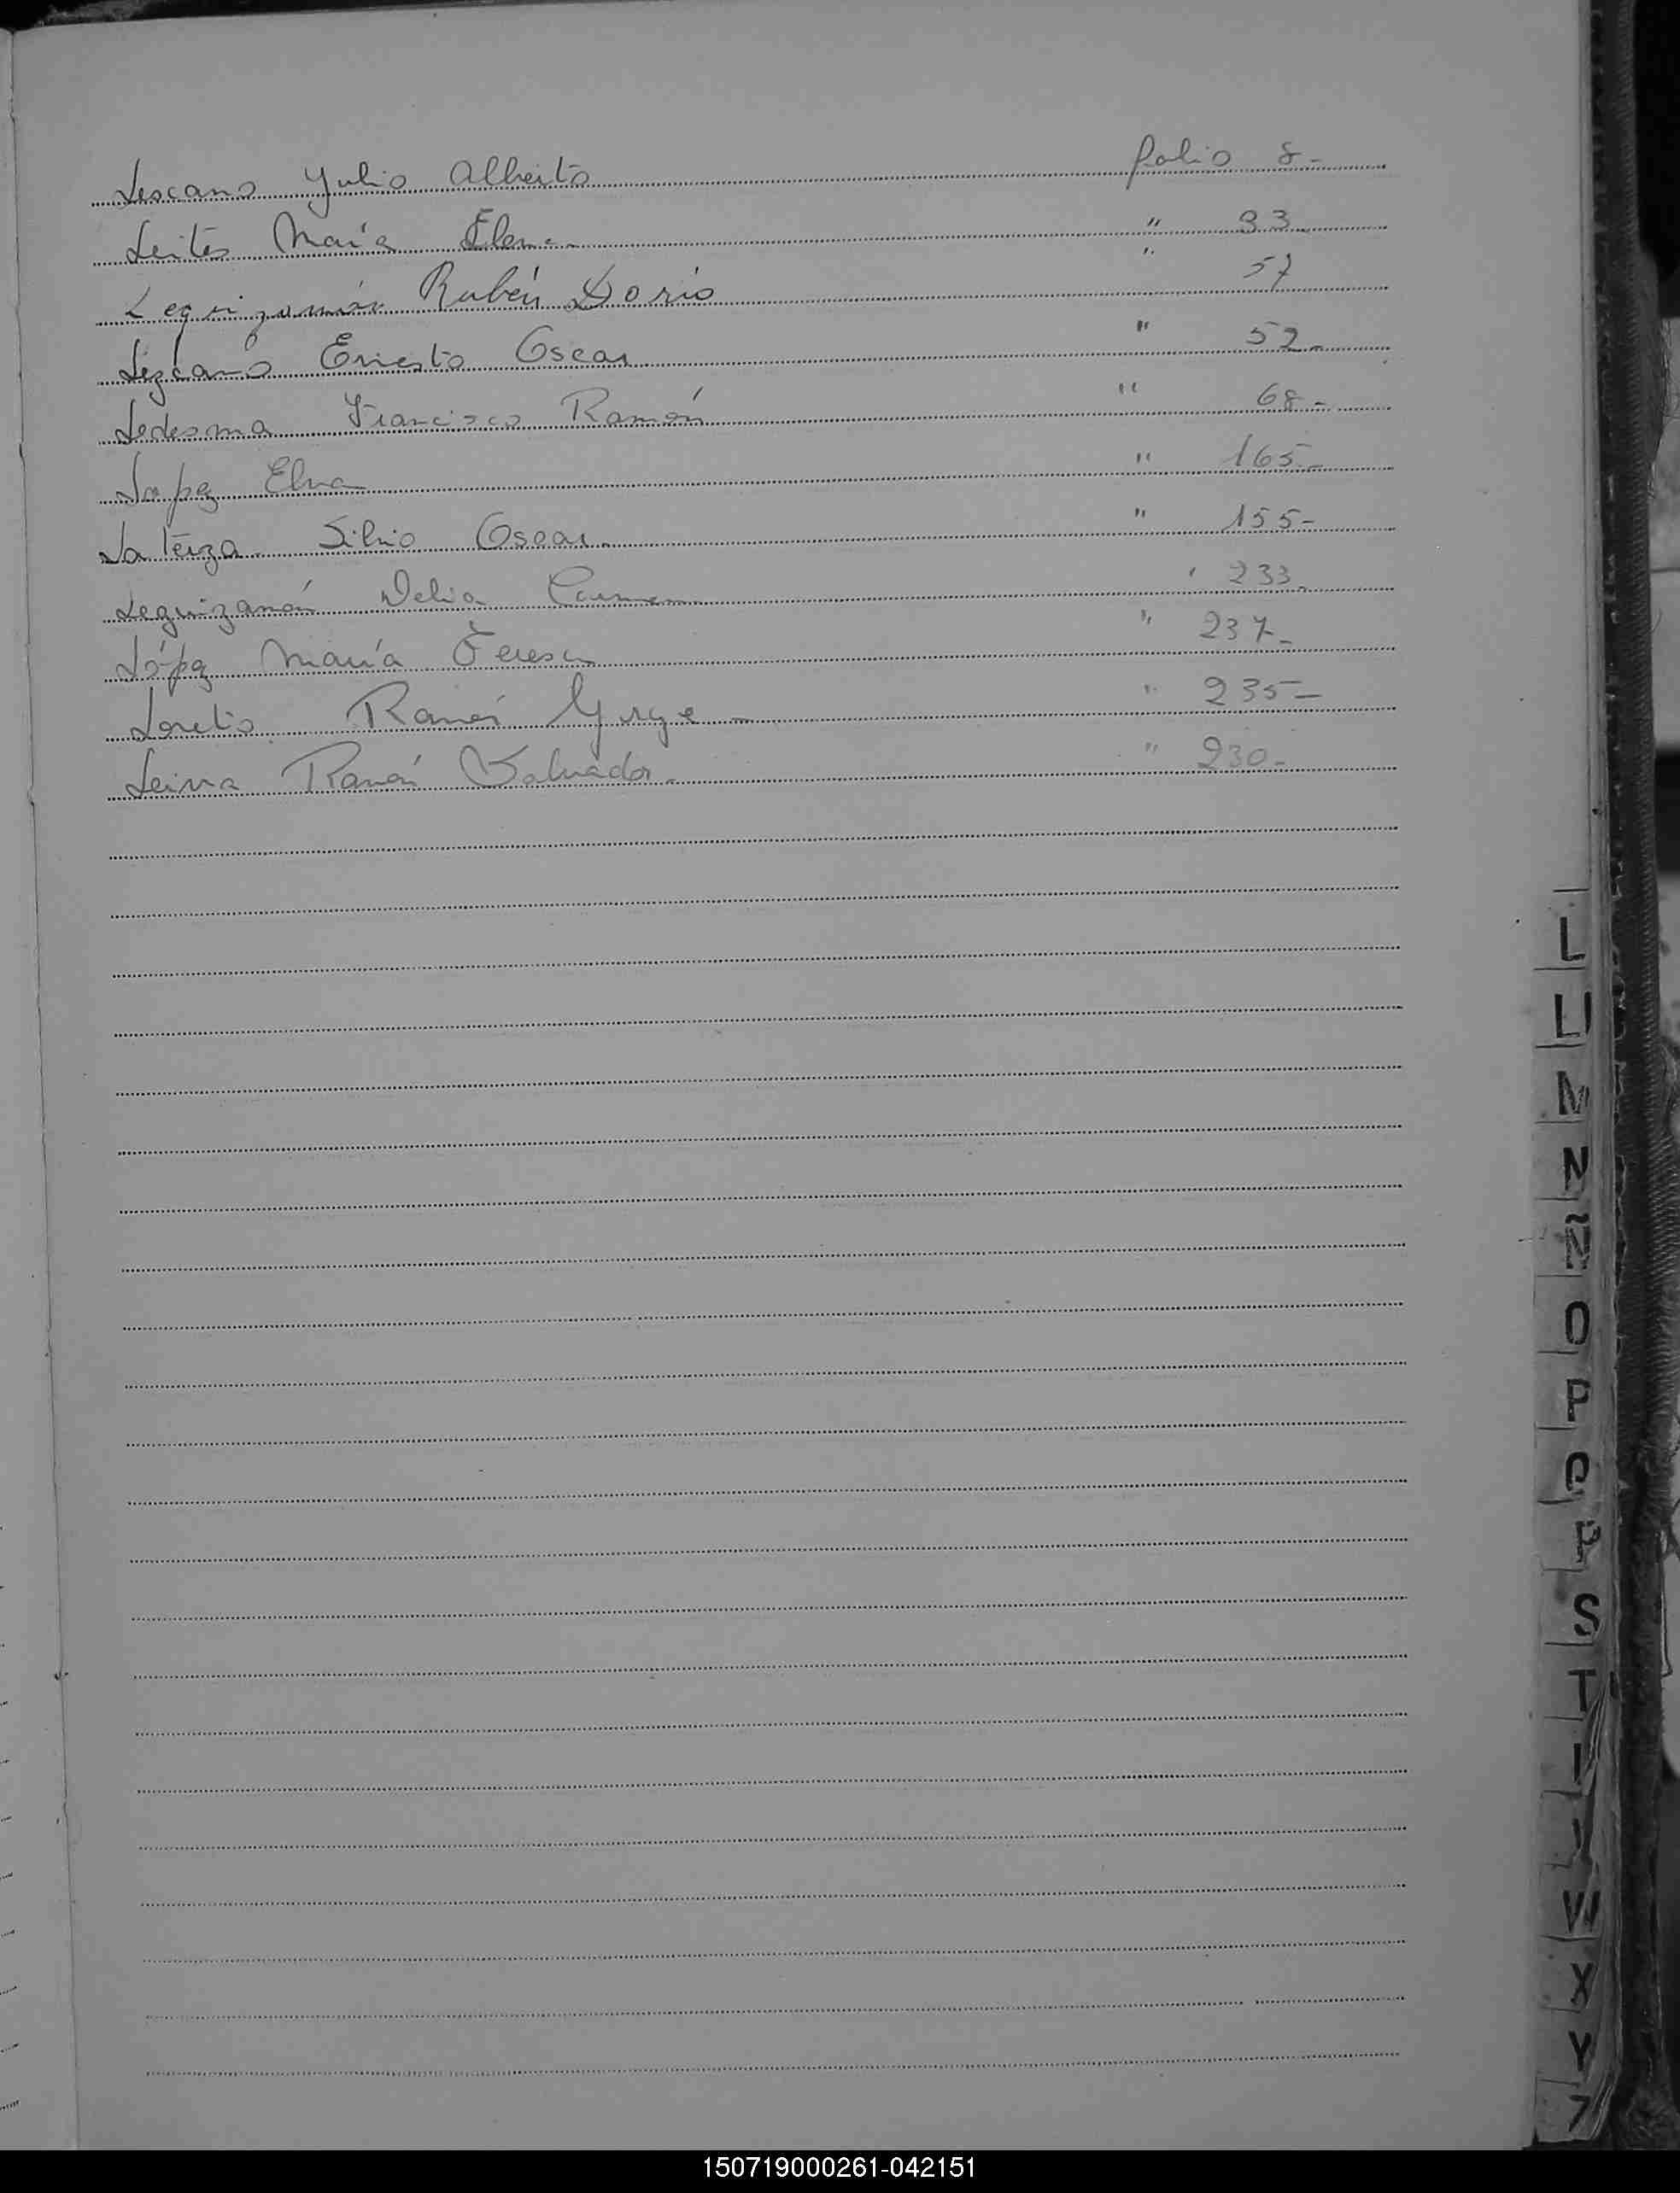 Lescano Julio Alberto folio 8-
Leites María Elena " 33
Leguizamón Rubén Dorio " 57
Lezcano Ernesto Oscar " 52-
Ledesma Francisco Ramón " 68-
Lopez Elva " 165-
La Terza Silvio Oscar. " 155-
Leguizamón Delia Carmen " 233-
López María Teresa " 237-
Loreto Ramón Jorge - " 235-
Leiva Ramón Salvador. " 230-
L
Ll
M
N
Ñ
O
P
Q
R
S
T
W
X
Y
Z
150719000261-042151